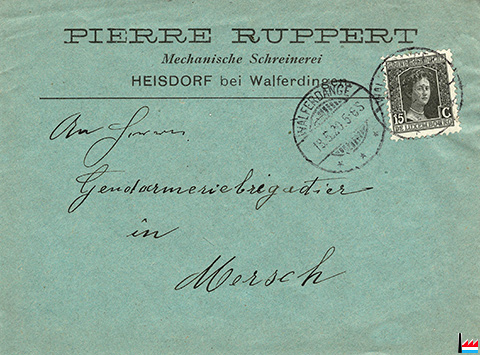 PIERRE RUPPERT
Mechanische Schreinerei
HEISDORF bei Walferdingen
WALFERDANGE
15 C
An Herrn
Gendarmeriebrigadier
in
Mersch